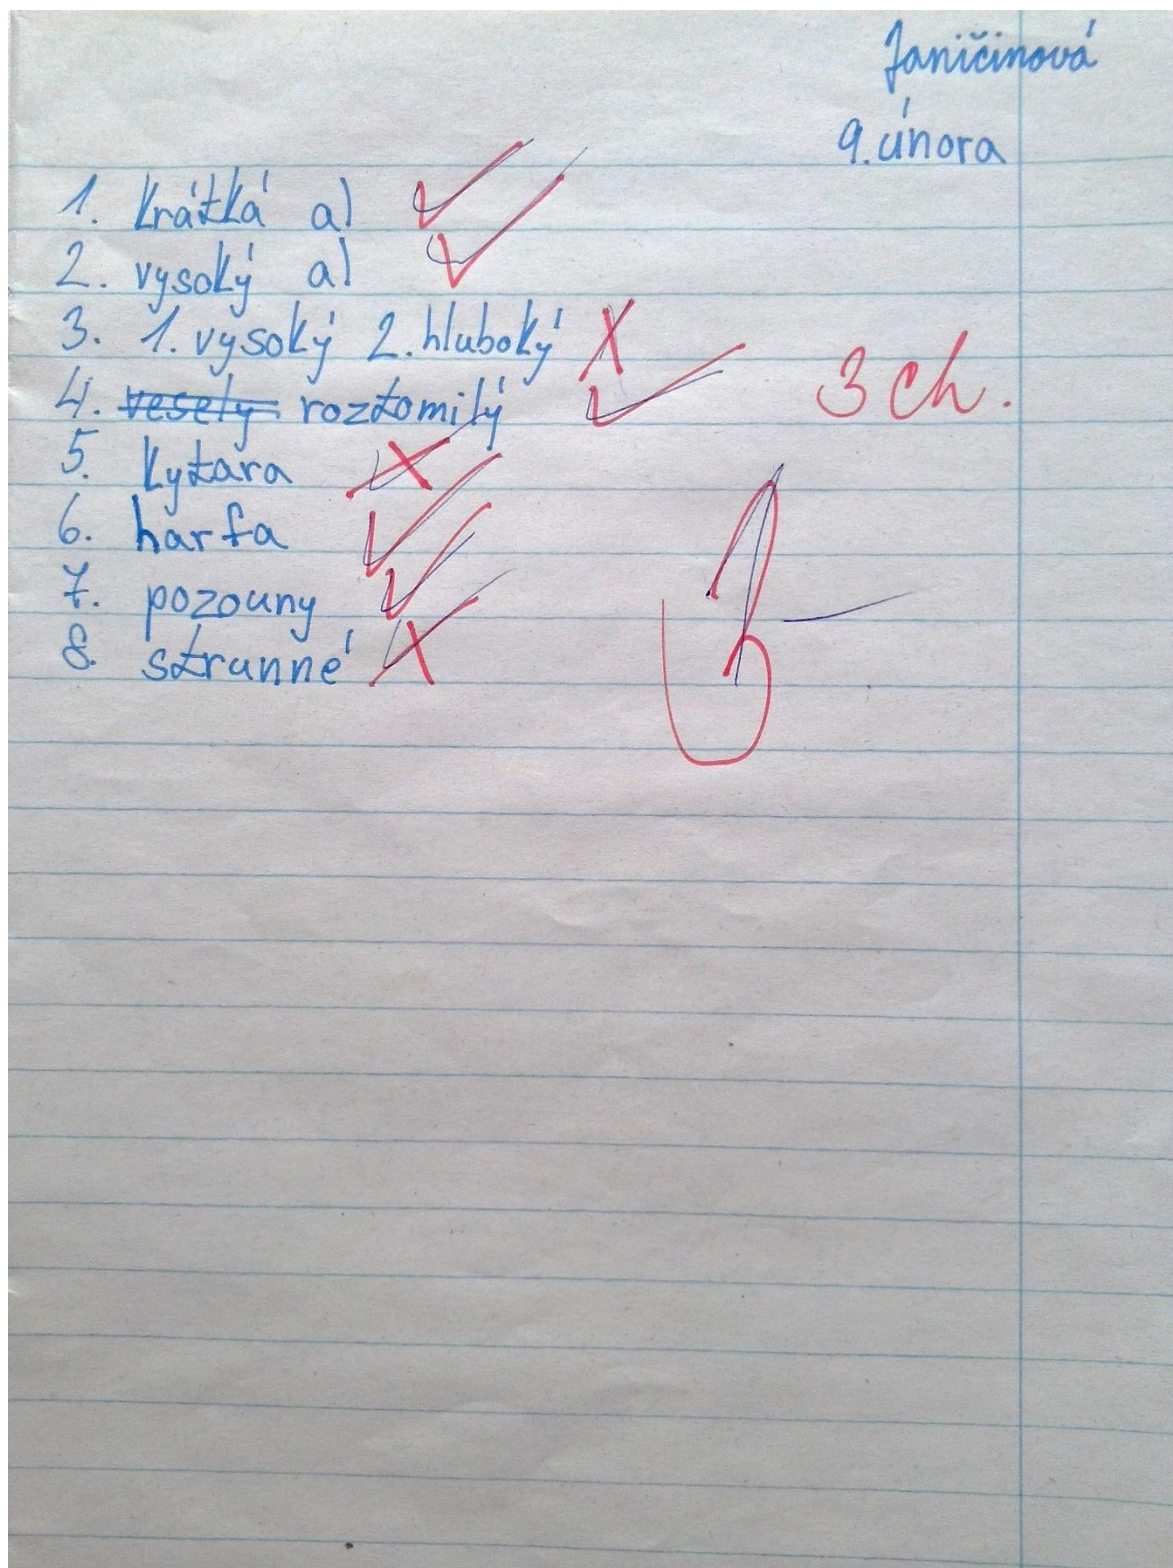 Janičinová
9. února
1. krátká a)
2. vysoký a)
3. 1. vysoký 2. hluboký
4. veselý roztomilý
5. kytara
6. harfa
7. pozouny
8. strunné
3 ch.